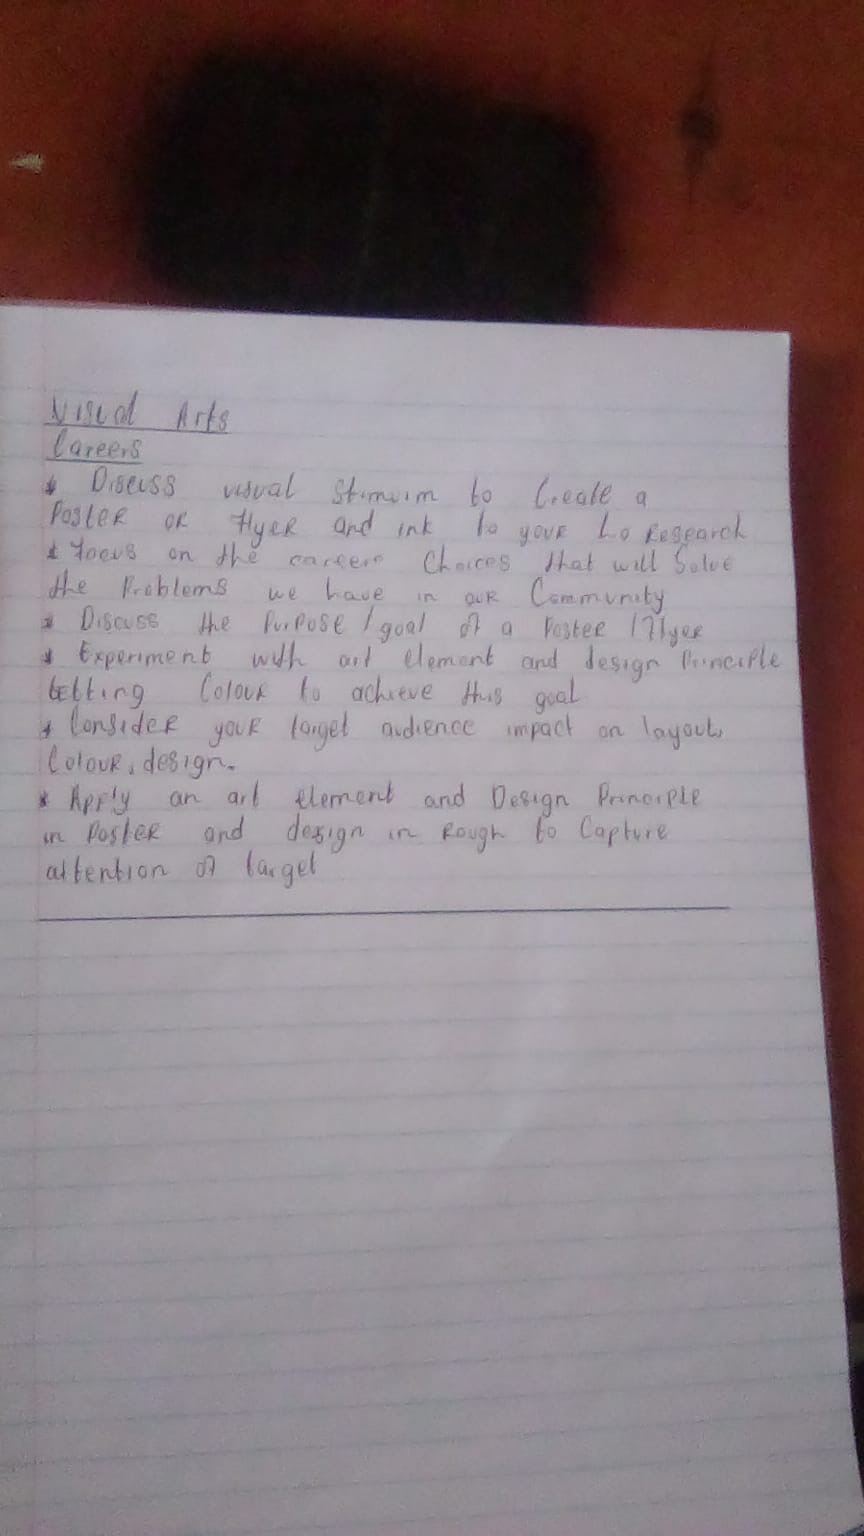 Visual Arts
Careers
* Discuss visual to Create a
Poster or Flyer and ink to your Lo Research
* Focus on the career Choices that will Solve
the Problems we have in our Community
* Discuss the Purpose / goal of a Poster / Flyer
* Experiment with art element and design Principle
Colour to achieve this goal
* Consider your target audience impact on layout,
Colour, design.
* Apply an art element and Design Principle
in Poster and design in Rough to Capture
attention of target